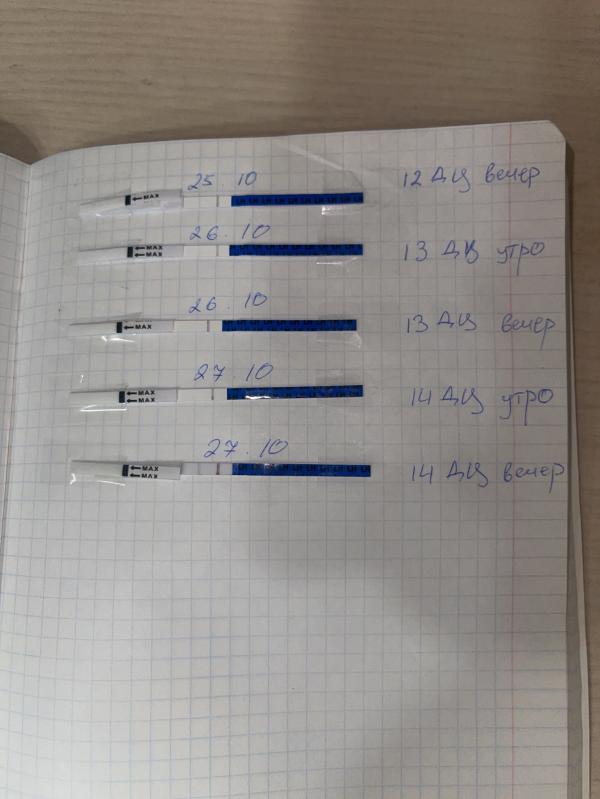 25.10
←MAX
12 ДЦ вечер
26.10
←MAX
←MAX
13 ДЦ утро
26.10
←MAX
13 ДЦ вечер
27.10
←MAX
←MAX
14 ДЦ утро
27.10
←MAX
←MAX
14 ДЦ вечер